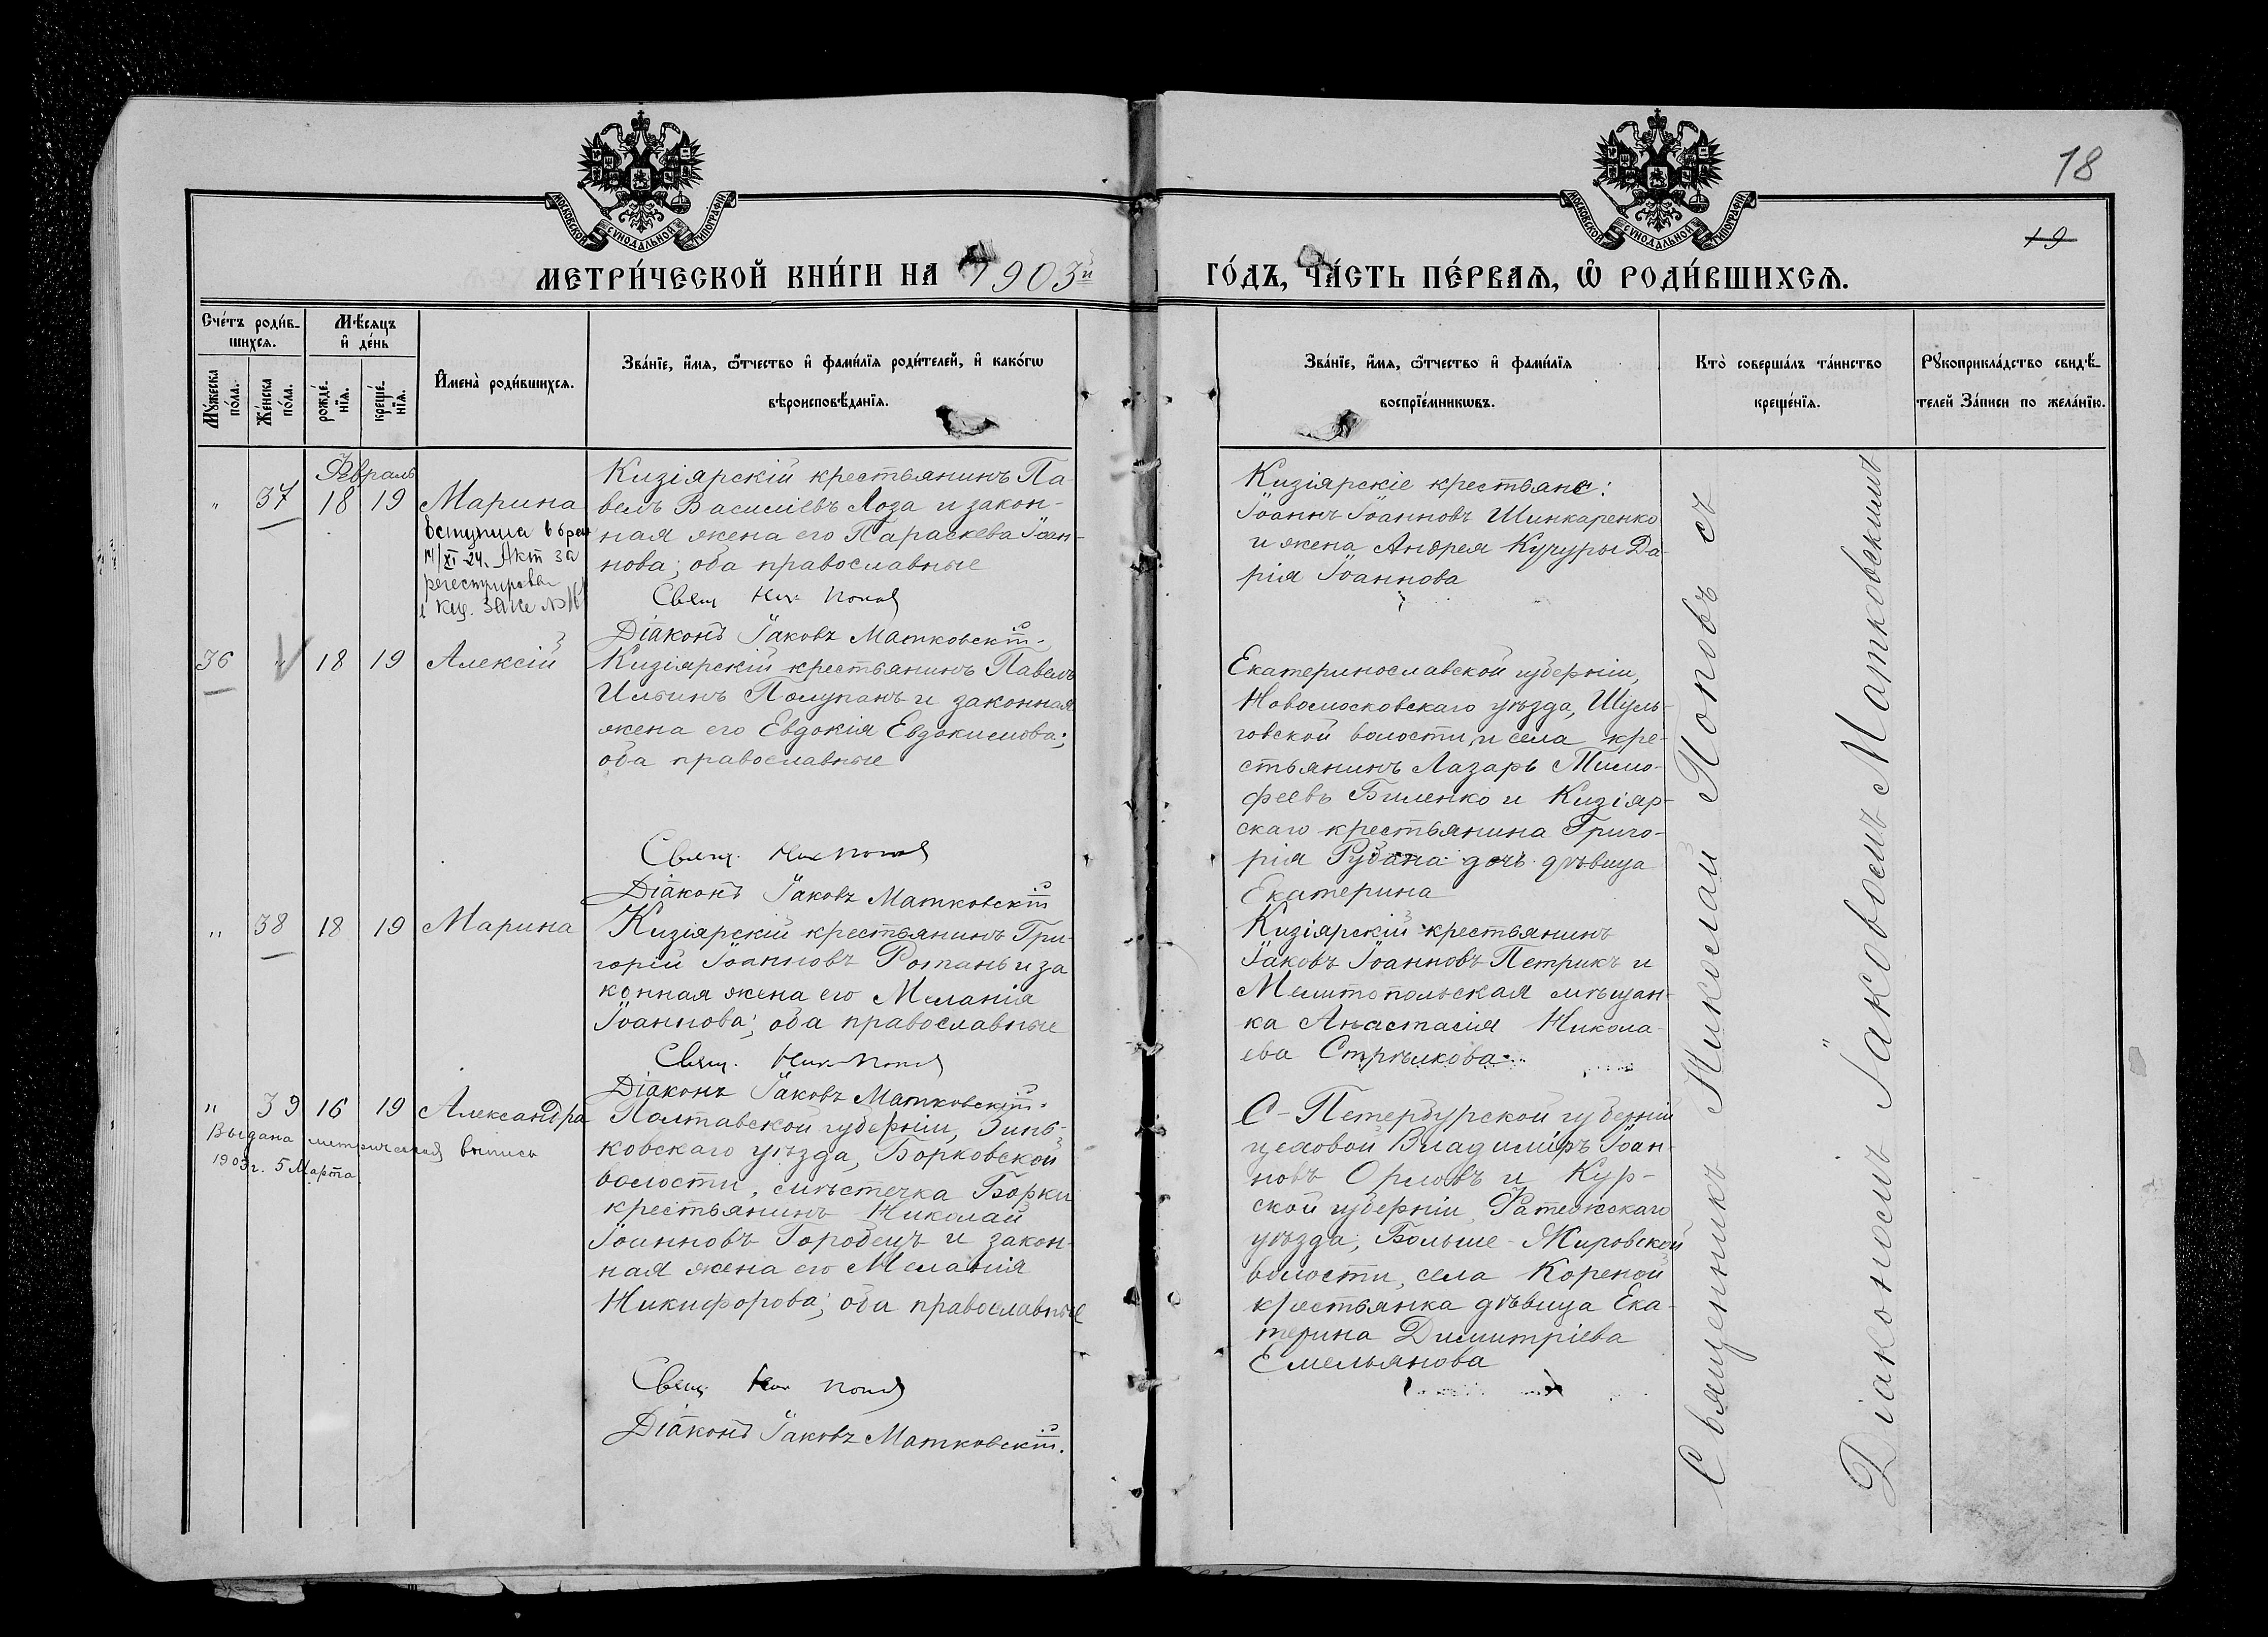 18
19
МОСКОВСКОЙ СУНОДАЛЬНОЙ ТИПОГРАФІИ
МОСКОВСКОЙ СУНОДАЛЬНОЙ ТИПОГРАФІИ
МЕТРИ́ЧЕСКОЙ КНИ́ГИ НА 1903й ГО́ДЪ, ЧА́СТЬ ПЕ́РВАЯ, Ѡ РОДИ́ВШИХСЯ.
Сче́тъ роди́в-
шихся.
Му́жеска по́ла.
Же́нска по́ла.
Мѣ́сяцъ
и де́нь
рожде́нїя.
креще́нїя.
Имена̀ роди́вшихся.
Зва́нїе, и́мя, ѻ́тчество и фами́лїя роди́телей, и како́гѡ
вѣроисповѣ́данїя.
Зва́нїе, и́мя, ѻ́тчество и фами́лїя
воспрїе́мникѡвъ.
Кто̀ соверша́лъ та́инство
креще́нїя.
Рꙋкоприкла́дство свидѣ́-
телей За́писи по жела́нїю.
Февраль
" 37 18 19 Марина
Вступила в брак
14/XI-24. Акт за
регистрирован
Кизіярскій крестьянинъ Па-
велъ Василіевъ Лоза и закон-
ная жена его Параскева Іоан-
нова; оба православные
Свящ Ник Попов
Діаконъ Іаковъ Матковскій.
Кизіярскіе крестьяне:
Іоаннъ Іоанновъ Шинкаренко
и жена Андрея Кучуры Да-
рія Іоаннова
36 " 18 19 Алексій
Кизіярскій крестьянинъ Павелъ
Ильинъ Полупанъ и законная
жена его Евдокія Евдокимова;
оба православные
Свящ. Ник Попов
Діаконъ Іаковъ Матковскій
Екатеринославской губерніи,
Новомосковскаго уѣзда, Шуль-
говской волости и села кре-
стьянинъ Лазарь Тимо-
феевъ Биленко и Кизіяр-
скаго крестьянина Григо-
рія Рубана дочь дѣвица
Екатерина
" 38 18 19 Марина
Кизіярскій крестьянинъ Гри-
горій Іоанновъ Ротань и за
конная жена его Меланія
Іоаннова; оба православные
Свящ. Ник Попов
Діаконъ Іаковъ Матковскій.
Кизіярскій крестьянинъ
Іаковъ Іоанновъ Петрикъ и
Мелитопольская мѣщан-
ка Анастасія Никола-
ева Стрѣлкова
" 39 16 19 Александра
Выдана метрическая выпись
1903 г. 5 Марта
Полтавской губерніи, Зинь-
ковскаго уѣзда, Борковской
волости, мѣстечка Борки
крестьянинъ Николай
Іоанновъ Городецъ и закон-
ная жена его Меланія
Никифорова; оба православные
Свящ Ник Попов
Діаконъ Іаковъ Матковскій.
С-Петербургской губерніи
цеховой Владиміръ Іоан-
новъ Орловъ и Кур-
ской губерніи, Фатежскаго
уѣзда, Больше-Жировской
волости, села Кореной
крестьянка дѣвица Ека-
терина Димитріева
Емельянова
Священникъ Николай Поповъ съ
Діакономъ Іаковомъ Матковскимъ